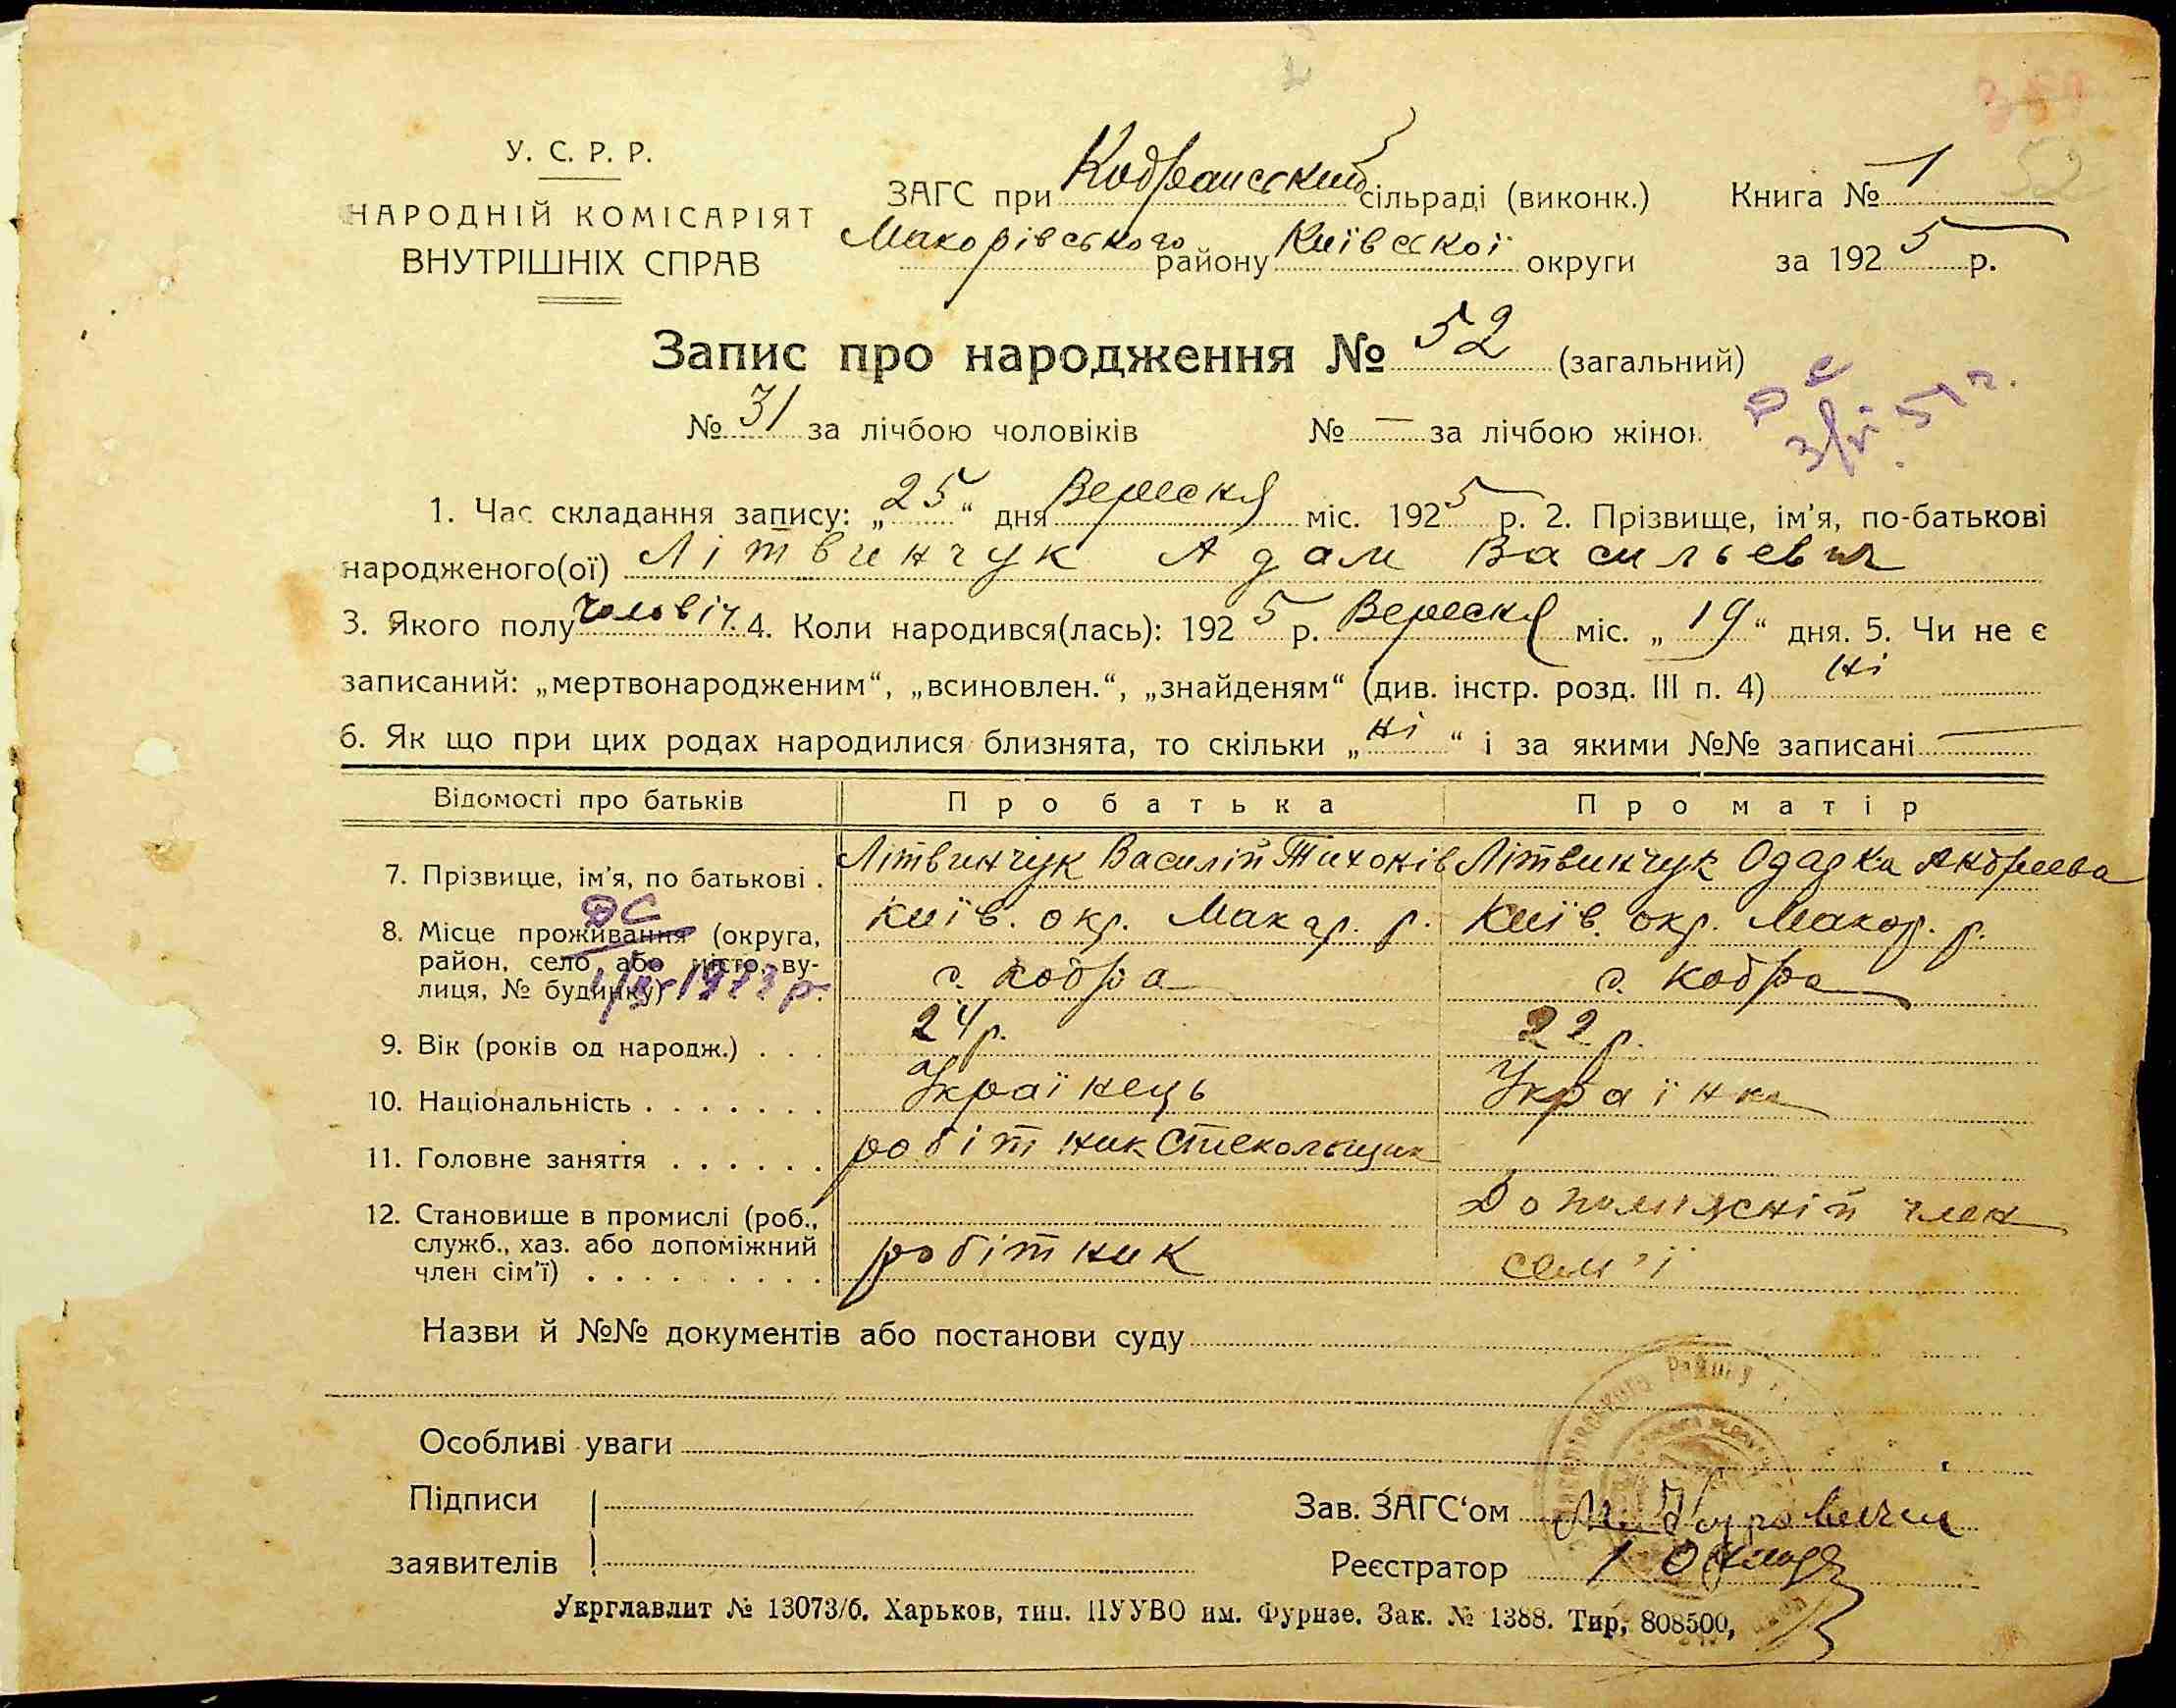 У. С. Р. Р.
НАРОДНІЙ КОМІСАРІЯТ
ВНУТРІШНІХ СПРАВ
ЗАГС при Кодранский сільраді (виконк.)
Макорівського району Київської округи
Книга № 1
за 1925 р.
52
Запис про народження № 52 (загальний)
№ 31 за лічбою чоловіків № — за лічбою жінок
ДС
3/VI 51 г.
1. Час складання запису: „25“ дня Вересня міс. 1925 р. 2. Прізвище, ім'я, по-батькові
народженого(ої) Літвинчук Адам Васильевич
3. Якого полу чоловіч. 4. Коли народився(лась): 1925 р. Вересня міс. „19“ дня. 5. Чи не є
записаний: „мертвонародженим“, „всиновлен.“, „знайденям“ (див. інстр. розд. III п. 4) ні
6. Як що при цих родах народилися близнята, то скільки „ні“ і за якими №№ записані —
Відомості про батьків Про батька Про матір
7. Прізвище, ім'я, по батькові . Літвинчук Василій Тихонів Літвинчук Одарка Андреева
ДС
8. Місце проживання (округа, район, село або місто, ву-
лиця, № будинку)
Київ. окр. Макар. р. Київ. окр. Макор. р.
с. Кодра с. Кодра
9. Вік (років од народж.) . . . 24 р. 22 р.
10. Національність . . . . . . . Українець Українка
11. Головне заняття . . . . . . робітник Стекольщик
12. Становище в промислі (роб., служб., хаз. або допоміжний
член сім'ї) . . . . . . . . .
робітник Допоміжній член
сем'ї
Назви й №№ документів або постанови суду
Особливі уваги
Підписи
заявителів
Зав. ЗАГС‘ом
Реєстратор
Укрглавлит № 13073/б. Харьков, тип. ПУУВО им. Фрунзе. Зак. № 1388. Тир, 808500,